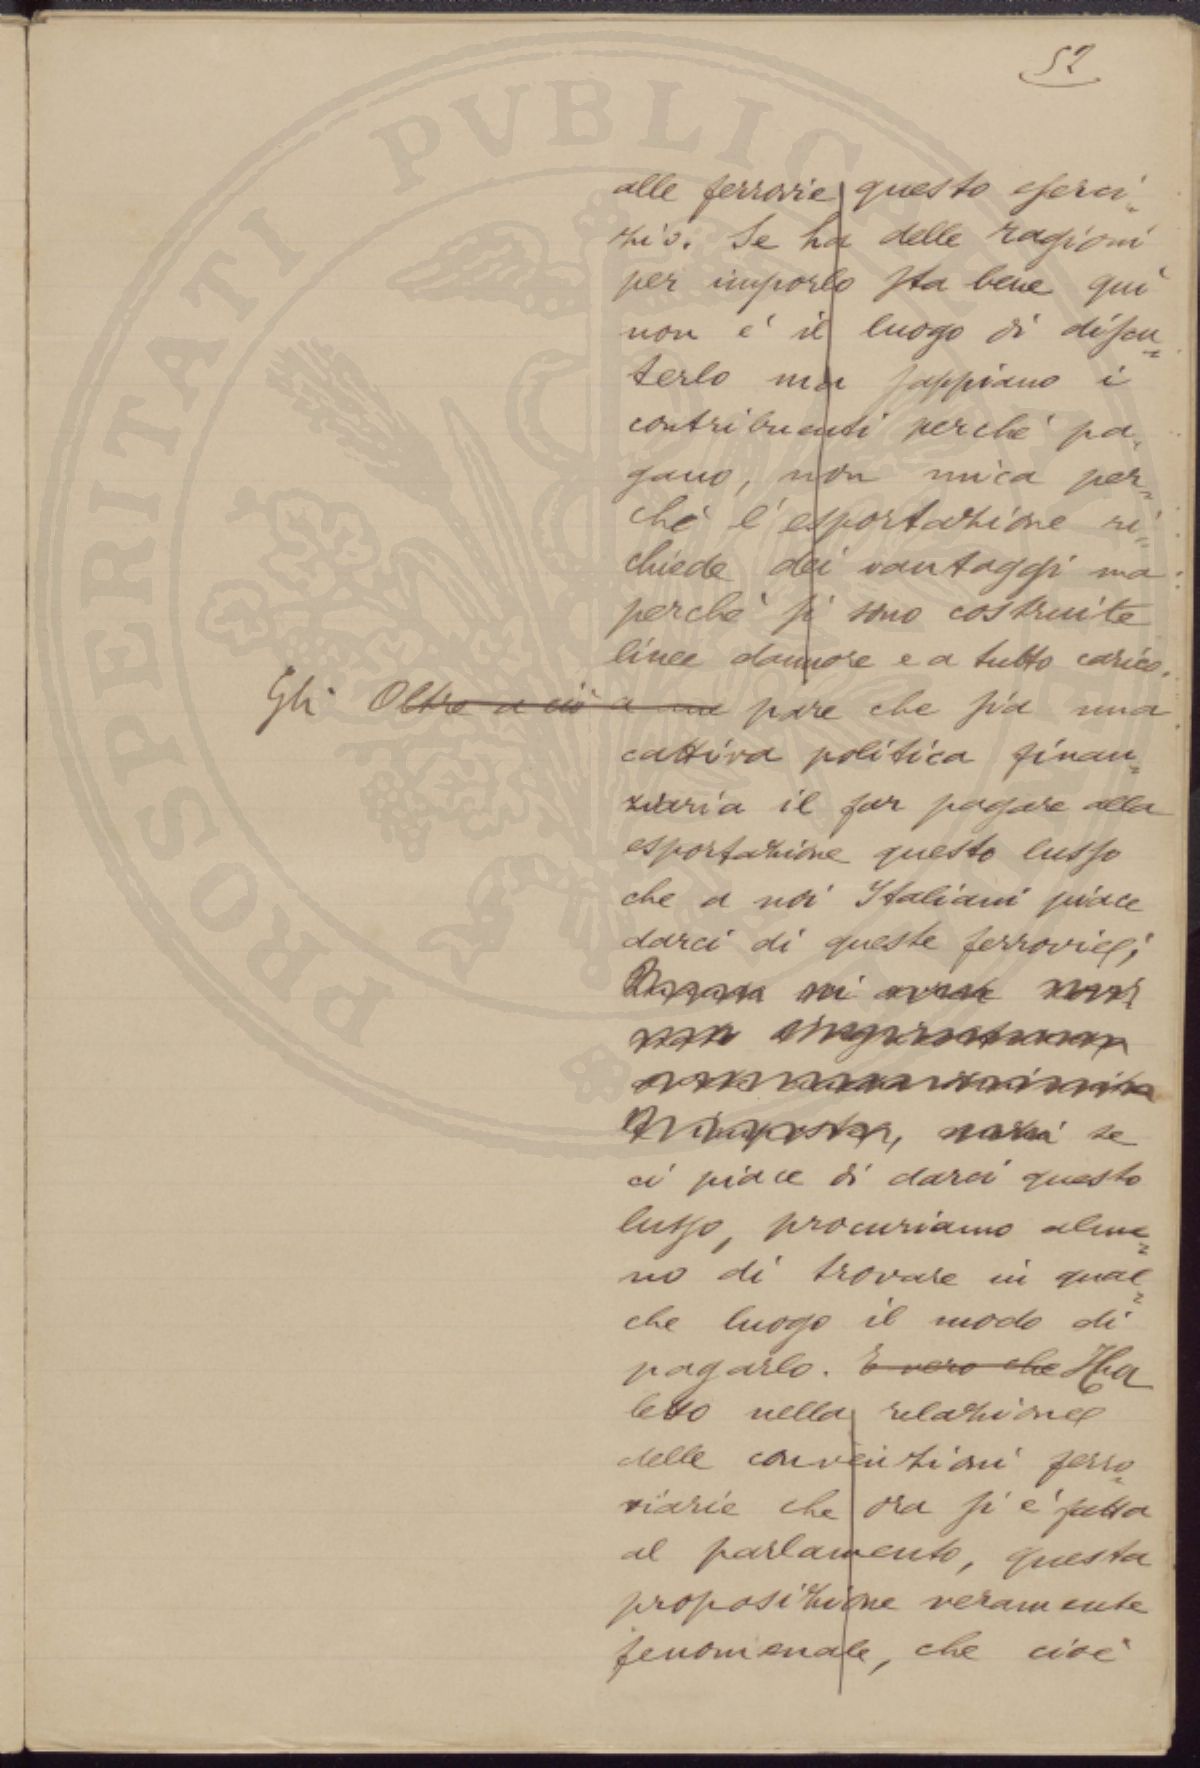 52
alle ferrovie questo eserci-
zio. Se ha delle ragioni
per imporlo sta bene qui
non é il luogo di discu-
terlo ma sappiano i
contribuenti perché pa-
gano, non mica per-
ché l'esportazione ri-
chiede dei vantaggi ma
perché si sono costruite
linee dannose e a tutto carico.
Gli Oltre a ciò a me pare che sia una
cattiva politica finan-
ziaria il far pagare alla
esportazione questo lusso
che a noi Italiani piace
darci di queste ferrovie;
se
ci piace di darci questo
lusso, procuriamo alme-
no di trovare in qual-
che luogo il modo di
pagarlo. E vero che Ha
letto nella relazione
delle convenzioni ferro-
viarie che ora si é fatta
al parlamento, questa
proposizione veramente
fenomenale, che cioé
PROSPERITATI PVBLICAE